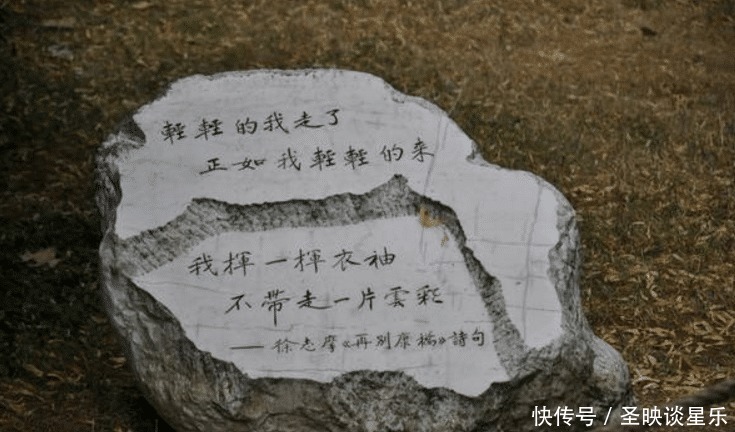 輕輕的我走了
正如我輕輕的来
我揮一揮衣袖
不帶走一片雲彩
——徐志摩《再别康橋》詩句
快传号/圣映谈星乐